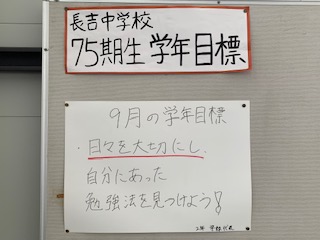 長吉中学校
75期生 学年目標
9月の学年目標
・日々を大切にし、
自分にあった
勉強法を見つけよう!
2年 学級代表